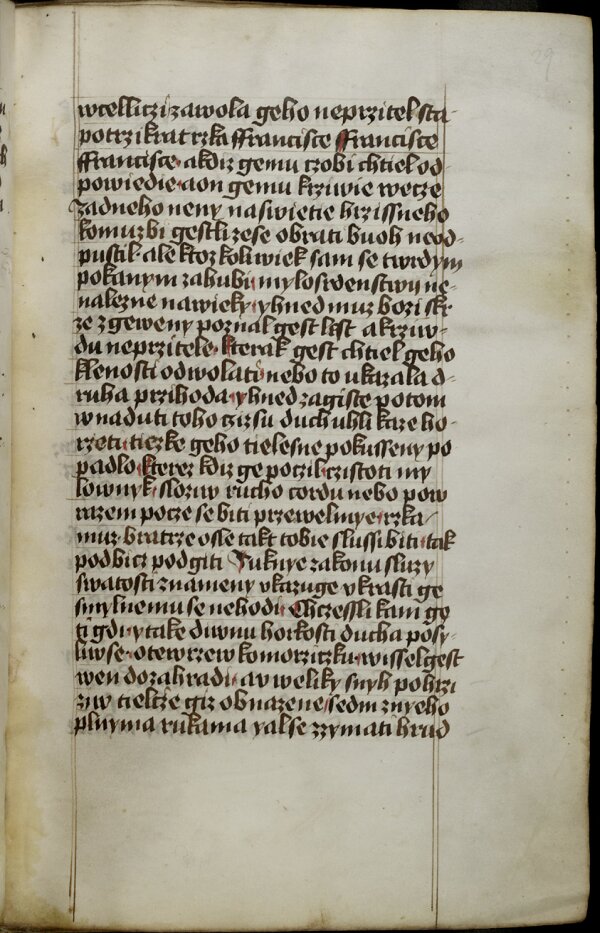 29
wcelliczi zawola geho neprzitel sta-
potrzikrat rzka ffrancisce ffrancisce
ffrancisce akdiz gemu czobi chtiel od
powiedie aon gemu krziwie wecze
zadneho neny naswietie hrzissneho
komuzbi gestli zese obrati buoh neod-
pustil ale ktoz koliwiek sam se twrdym
pokanym zahubi mylosrdenstwy ne-
nalezne nawieky yhned muz bozi skr-
ze zgeweny poznal gest lest akrziw-
du neprzitele kterak gest chtiel geho
klenosti odwolati nebo to ukazala d-
ruha przihoda yhned zagiste potom
wnaduti toho gizsu duch uhli kaze ho-
rzeti tiezke geho tielesne pokusseny po
padlo kterez kdiz ge poczil czistoti my
lownyk sloziw rucho cordu nebo pow
razem pocze se biti przewelmye rzka
muz bratrze osse takt tobie slussi biti tak
podbicz podgiti Suknye zakonu sluzy
swatosti znameny vkazuge vkrasti ge
smylnemu se nehodi Chczessli kam go
ti gdi ytake diwnu horkosti ducha posy-
liw se otewrzew komorziczku wissel gest
wen do zahradi aw weliky snyh pohrzi
ziw tieltze giz obnazene sedm znyeho
plnyma rukama yal se zzymati hrud